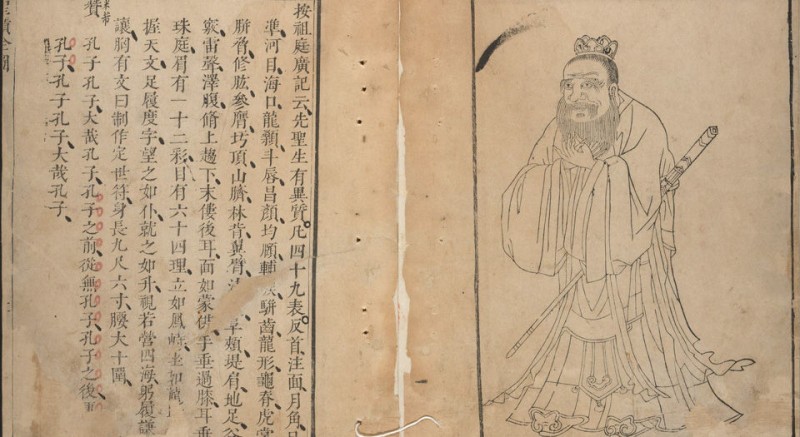 按祖庭廣記云先聖生有異質凡四十九表反首洼面月角日
準河目海口龍顙斗唇昌顏均頤輔 駢齒龍形龜脊虎掌
胼脅修肱參膺圩頂山臍林背翼臂 阜頰堤眉地足谷
竅雷聲澤腹脩上趨下末僂後耳面如蒙倛手垂過膝耳垂
珠庭眉有一十二彩目有六十四理立如鳳峙坐如
握天文足履度字望之如仆就之如升視若營四海躬履謙
讓胸有文曰制作定世符身長九尺六寸腰大十圍
米芾贊
孔子孔子大哉孔子孔子之前從無孔子孔子之後
孔子孔子大哉孔子
全圖